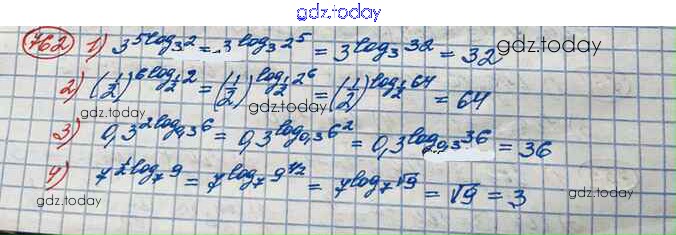 gdz.today
gdz.today
762 1) 3^{5log_3 2} = 3^{log_3 2^5} = 3^{log_3 32} = 32
2) (1/2)^{6log_{1/2} 2} = (1/2)^{log_{1/2} 2^6} = (1/2)^{log_{1/2} 64} = 64
gdz.today
gdz.today
3) 0,3^{2log_{0,3} 6} = 0,3^{log_{0,3} 6^2} = 0,3^{log_{0,3} 36} = 36
4) 7^{1/2 log_7 9} = 7^{log_7 9^{1/2}} = 7^{log_7 √9} = √9 = 3
gdz.today
gdz.today